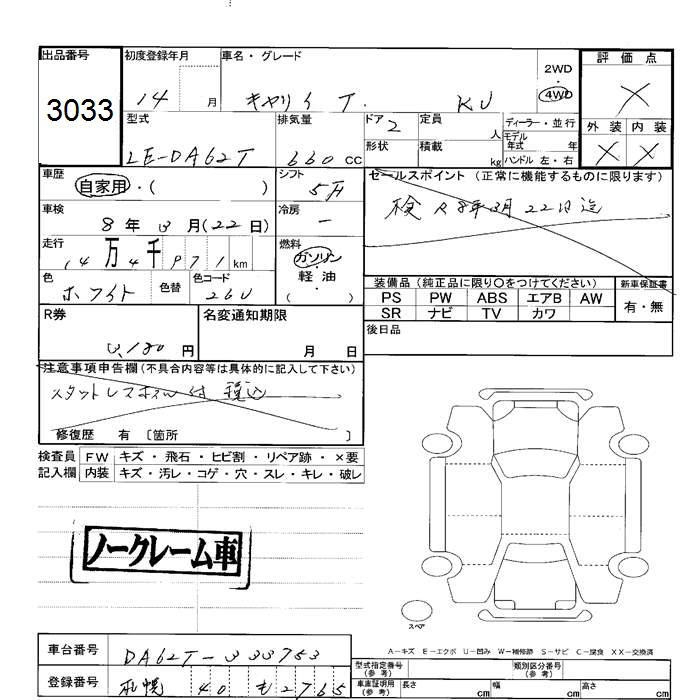 出品番号
3033
初度登録年月
14 月
車名・グレード
キャリイ T. KU
2WD
・
4WD
評価点
×
外装 内装
× ×
型式
LE-DA62T
排気量
660 cc
ドア 2
形状
定員
人
積載
kg
ディーラー・並行
モデル
年式 年
ハンドル 左・右
車歴
自家用・( )
シフト
5F
セールスポイント (正常に機能するものに限ります)
検 R8年3月22日迄
車検
8年3月(22日)
冷房
ー
走行
14万4千971km
燃料
ガソリン
・
軽油
( )
色
ホワイト
色替
色コード
26U
装備品 (純正品に限り〇をつけてください)
新車保証書
PS PW ABS エアB AW
SR ナビ TV カワ
有・無
R券
3,180 円
名変通知期限
月 日
後日品
注意事項申告欄 (不具合内容等は具体的に記入して下さい)
スタットレスホイル付 税込
修復歴 有 〔箇所 〕
検査員
記入欄
FW キズ・飛石・ヒビ割・リペア跡・×要
内装 キズ・汚レ・コゲ・穴・スレ・キレ・破レ
ノークレーム車
スペア
A-キズ E-エクボ U-凹み W-補修跡 S-サビ C-腐食 XX-交換済
車台番号
DA62T-333753
登録番号
札幌 40 も 2765
型式指定番号
(参考)
類別区分番号
(参考)
車庫証明用
(参考)
長さ cm
幅 cm
高さ cm